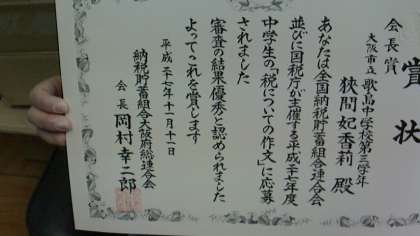 賞状
会長賞
大阪市立歌島中学校第三学年
狹間妃香莉 殿
あなたは全国納税貯蓄組合連合会
並びに国税庁が主催する平成二十七年度
中学生の「税についての作文」に応募
されました
審査の結果優秀と認められました
よってこれを賞します
平成二十七年十一月十一日
納税貯蓄組合大阪府総連合会
会長 岡村幸二郎